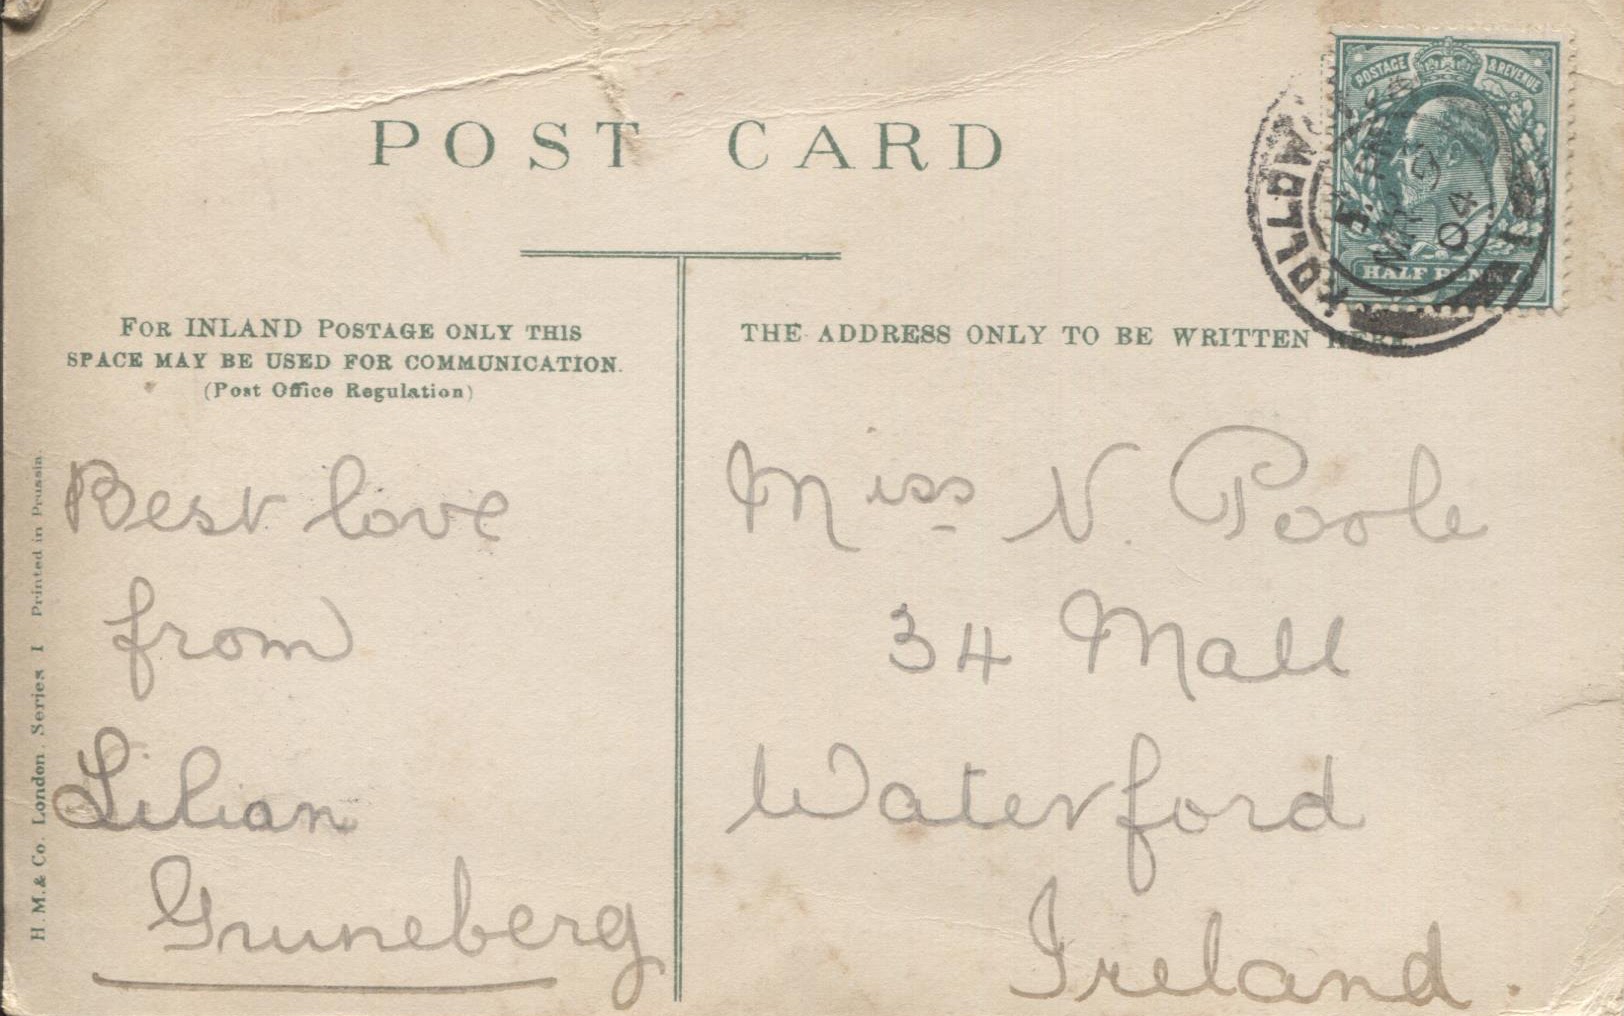 POST CARD
POSTAGE & REVENUE
HALF PENNY
MR 9
04
FOR INLAND POSTAGE ONLY THIS
SPACE MAY BE USED FOR COMMUNICATION.
(Post Office Regulation)
THE ADDRESS ONLY TO BE WRITTEN HERE.
Best love
from
Lilian
Gruneberg
Miss V. Poole
34 Mall
Waterford
Ireland.
H. M. & Co. London. Series I Printed in Prussia.